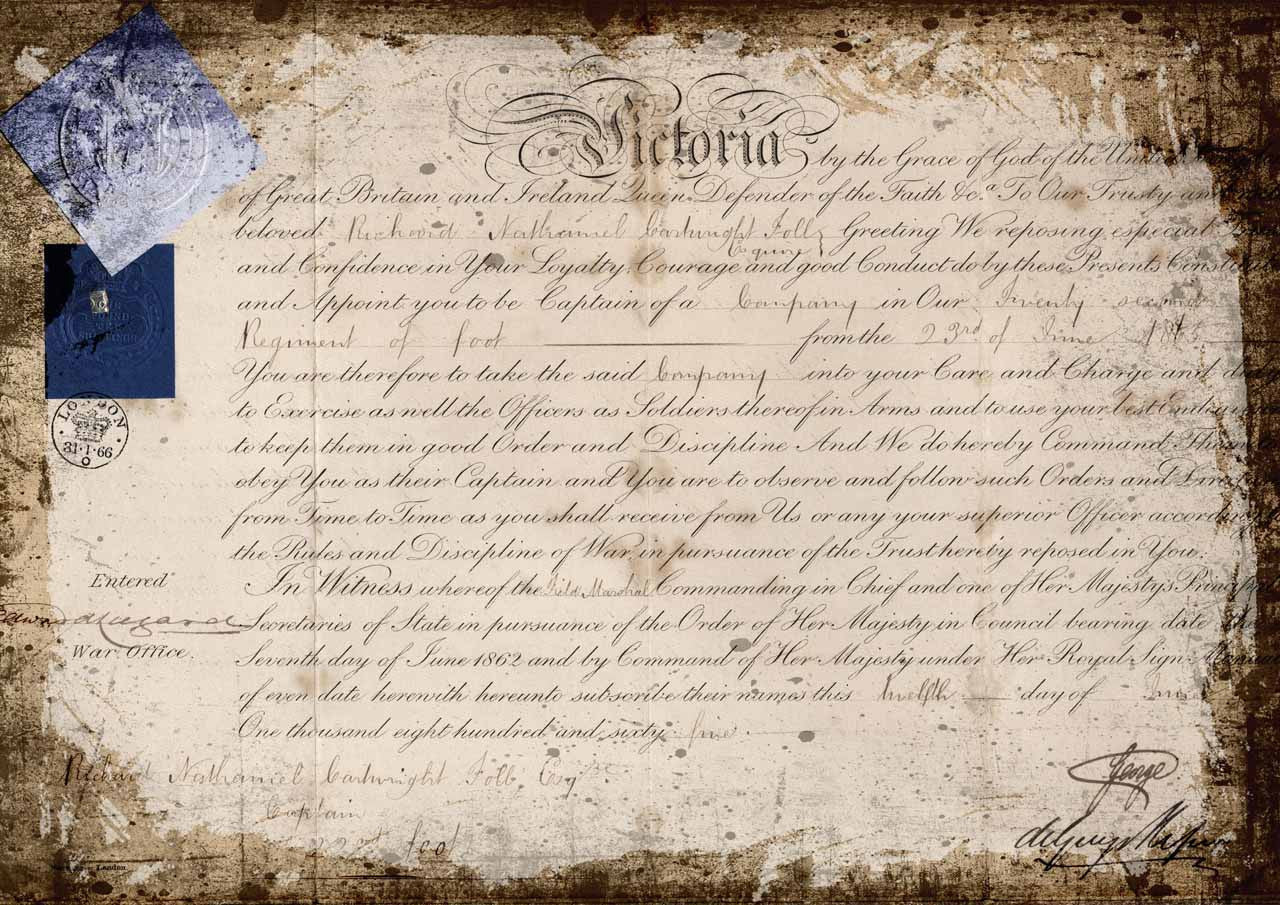 Victoria by the Grace of God of the United
of Great Britain and Ireland Queen Defender of the Faith &c.ª To Our Trusty and
beloved Richard Nathaniel Cartwright Foll Esquire Greeting We reposing especial
and Confidence in Your Loyalty, Courage and good Conduct do by these Presents Constitute
and Appoint you to be Captain of a Company in Our Twenty second
Regiment of foot from the 23rd of June 1865
You are therefore to take the said Company into your Care and Charge and
to Exercise as well the Officers as Soldiers thereof in Arms and to use your best Endeavours
to keep them in good Order and Discipline And We do hereby Command Them
obey You as their Captain and You are to observe and follow such Orders and
from Time to Time as you shall receive from Us or any your superior Officer according
the Rules and Discipline of War, in pursuance of the Trust hereby reposed in You.
In Witness whereof the Field Marshal Commanding in Chief and one of Her Majesty's Principal
Secretaries of State in pursuance of the Order of Her Majesty in Council bearing date the
Seventh day of June 1862 and by Command of Her Majesty under Her Royal Sign
of even date herewith hereunto subscribe their names this twelfth day of June
One thousand eight hundred and sixty five
LONDON
31·1·66
Entered
War Office.
Richard Nathaniel Cartwright Foll Esq
Captain
22nd foot
George
London